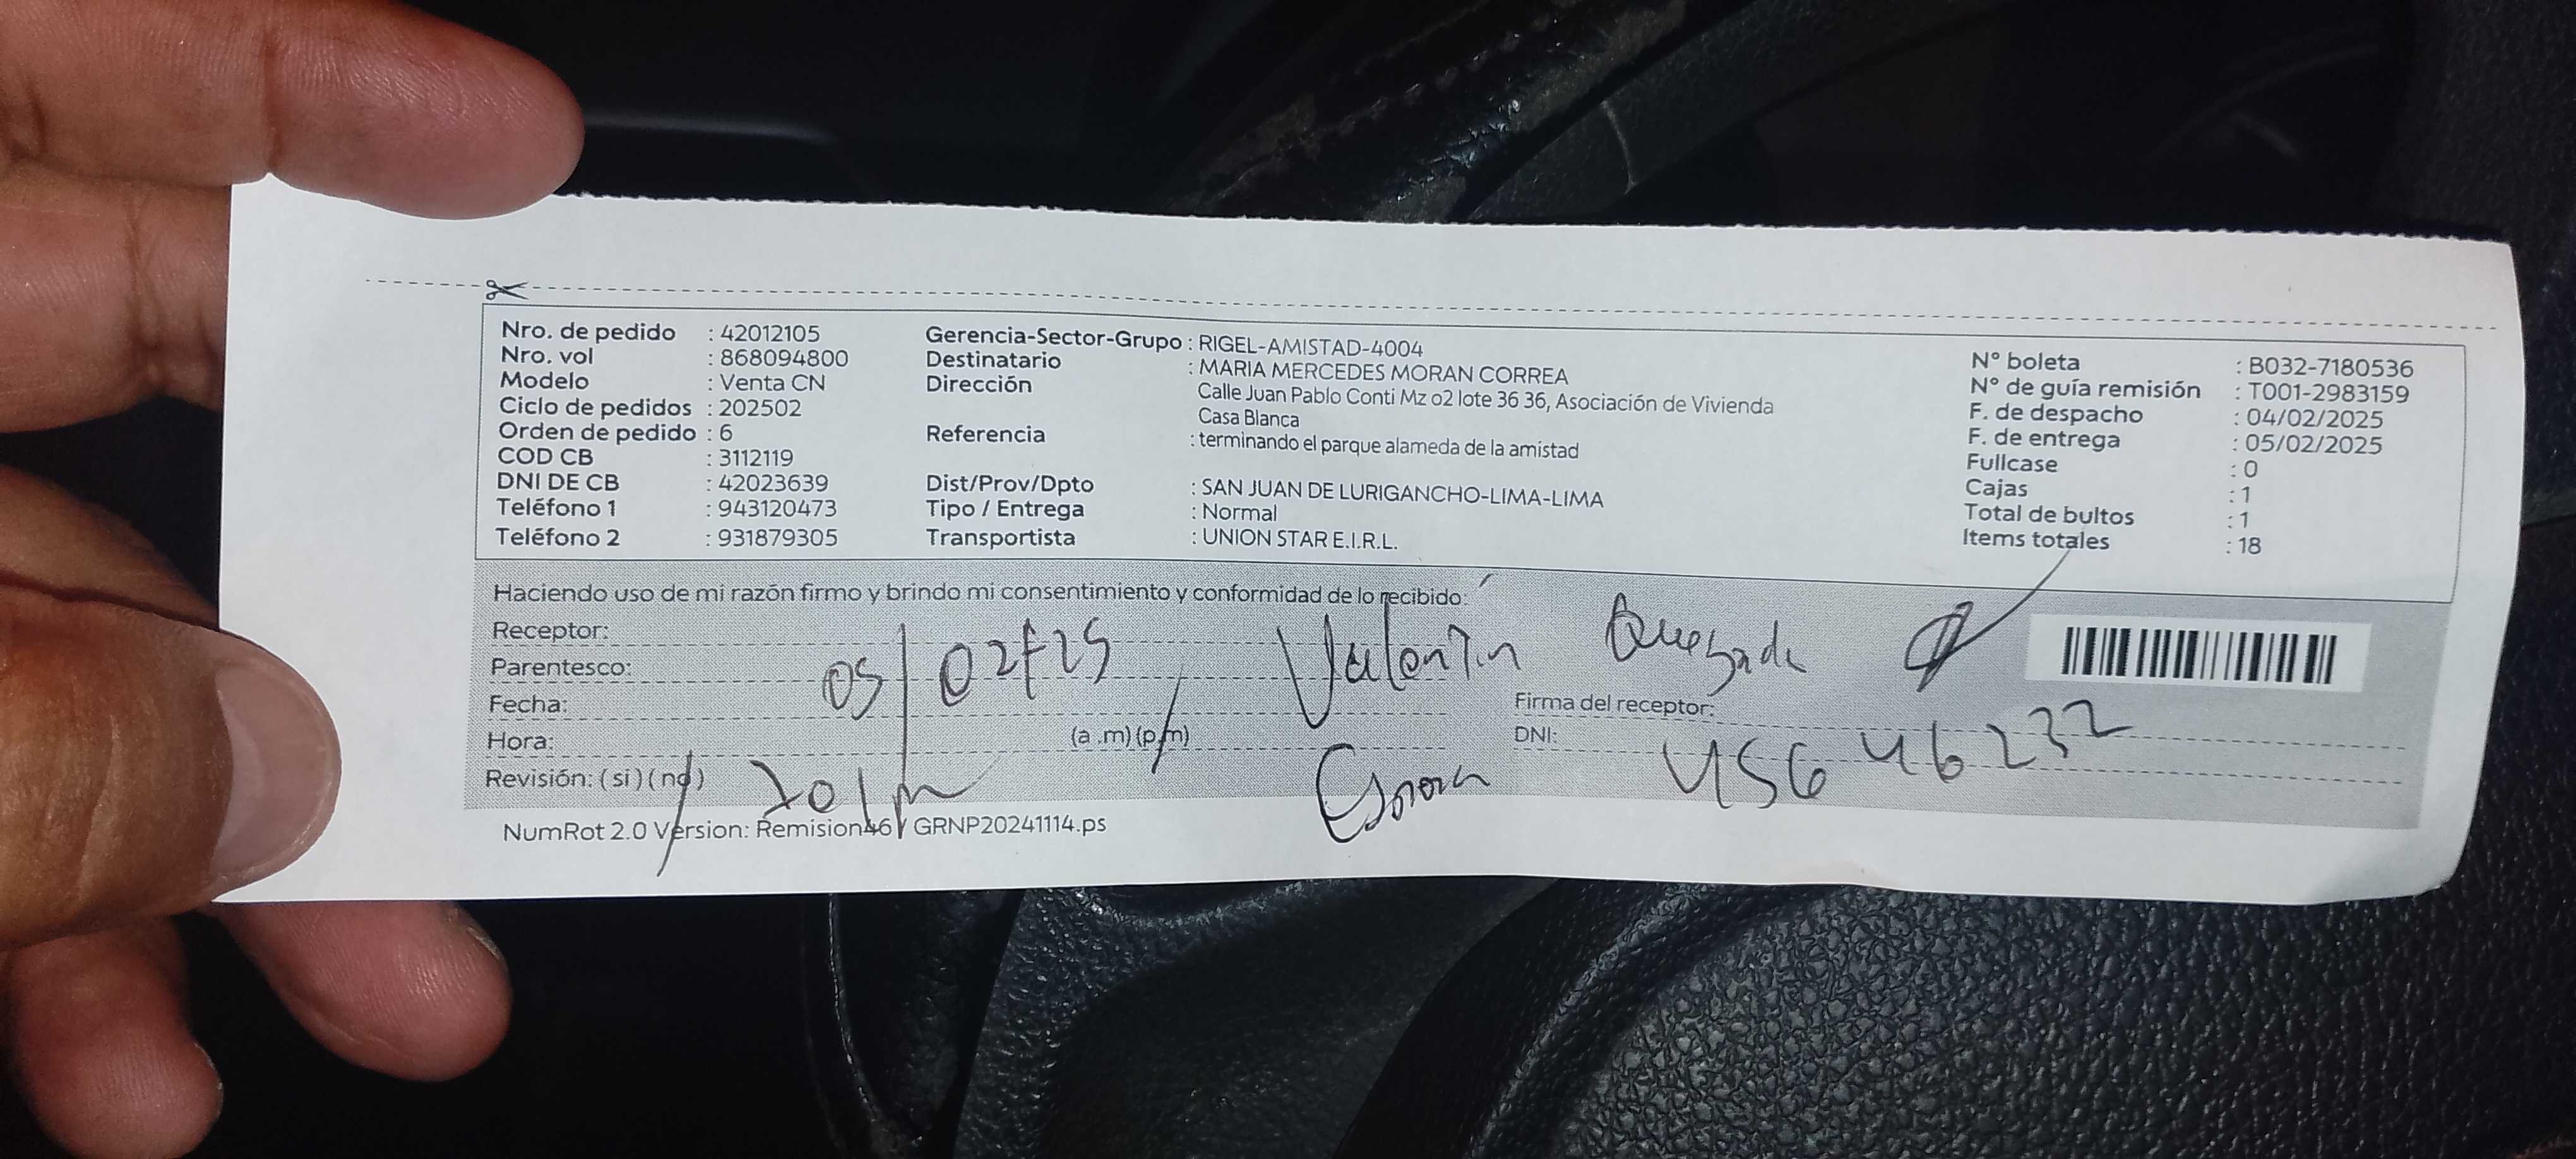 Nro. de pedido : 42012105
Nro. vol : 868094800
Modelo : Venta CN
Ciclo de pedidos : 202502
Orden de pedido : 6
COD CB : 3112119
DNI DE CB : 42023639
Teléfono 1 : 943120473
Teléfono 2 : 931879305
Gerencia-Sector-Grupo : RIGEL-AMISTAD-4004
Destinatario : MARIA MERCEDES MORAN CORREA
Dirección Calle Juan Pablo Conti Mz o2 lote 36 36, Asociación de Vivienda
Casa Blanca
Referencia : terminando el parque alameda de la amistad
Dist/Prov/Dpto : SAN JUAN DE LURIGANCHO-LIMA-LIMA
Tipo / Entrega : Normal
Transportista : UNION STAR E.I.R.L.
N° boleta : B032-7180536
N° de guía remisión : T001-2983159
F. de despacho : 04/02/2025
F. de entrega : 05/02/2025
Fullcase : 0
Cajas : 1
Total de bultos : 1
Items totales : 18
Haciendo uso de mi razón firmo y brindo mi consentimiento y conformidad de lo recibido:
Receptor: Valentin Quezada
Parentesco:
Fecha: 05/02/25
Hora: (a .m) (p.m)
Revisión: ( si ) ( no )
Firma del receptor:
DNI: 45646232
NumRot 2.0 Version: Remision46 / GRNP20241114.ps